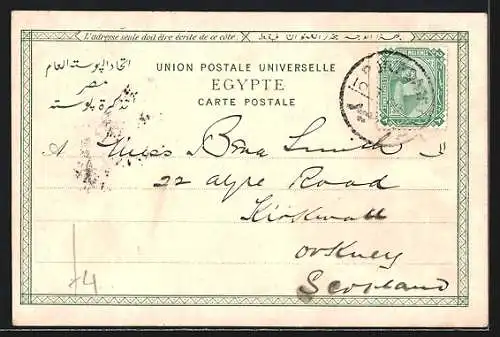 L'adresse seule doit être écrite de ce côté
اتحاد البوستة العام
مصر
تذكرة بوستة
UNION POSTALE UNIVERSELLE
EGYPTE
CARTE POSTALE
A Miss Bona Smith الى
22 Ayre Road
Kirkwall
Orkney
Scotland
4